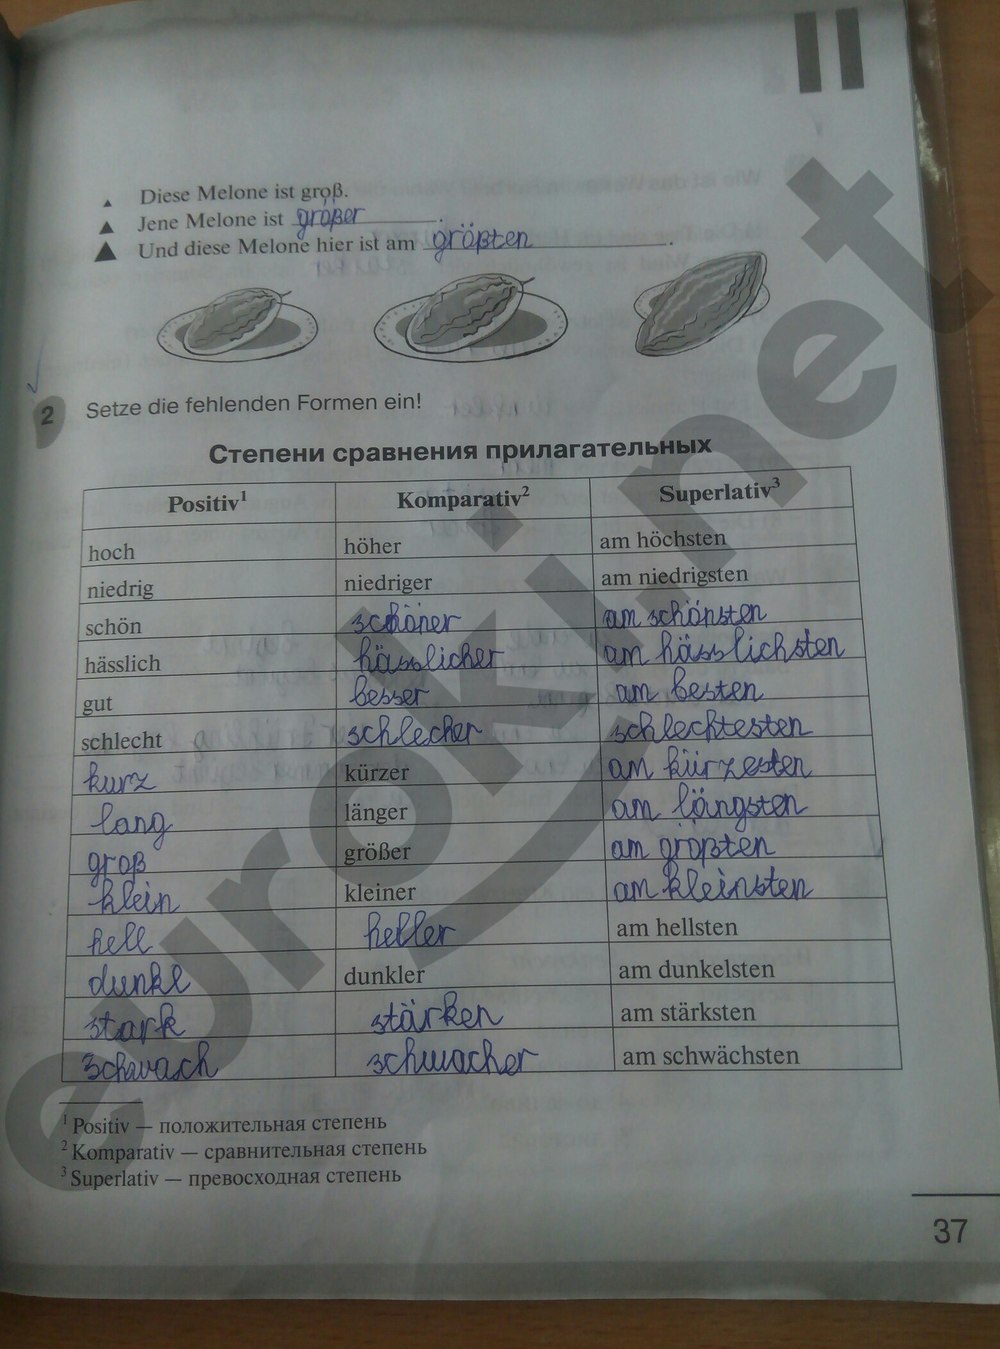 Diese Melone ist groß.
Jene Melone ist größer.
Und diese Melone hier ist am größten.
2 Setze die fehlenden Formen ein!
Степени сравнения прилагательных
Positiv¹ Komparativ² Superlativ³
hoch höher am höchsten
niedrig niedriger am niedrigsten
schön schöner am schönsten
hässlich hässlicher am hässlichsten
gut besser am besten
schlecht schlecher schlechtesten
kurz kürzer am kürzesten
lang länger am längsten
groß größer am größten
klein kleiner am kleinsten
hell heller am hellsten
dunkl dunkler am dunkelsten
stark stärken am stärksten
schwach schwacher am schwächsten
¹ Positiv — положительная степень
² Komparativ — сравнительная степень
³ Superlativ — превосходная степень
37
eurokinet